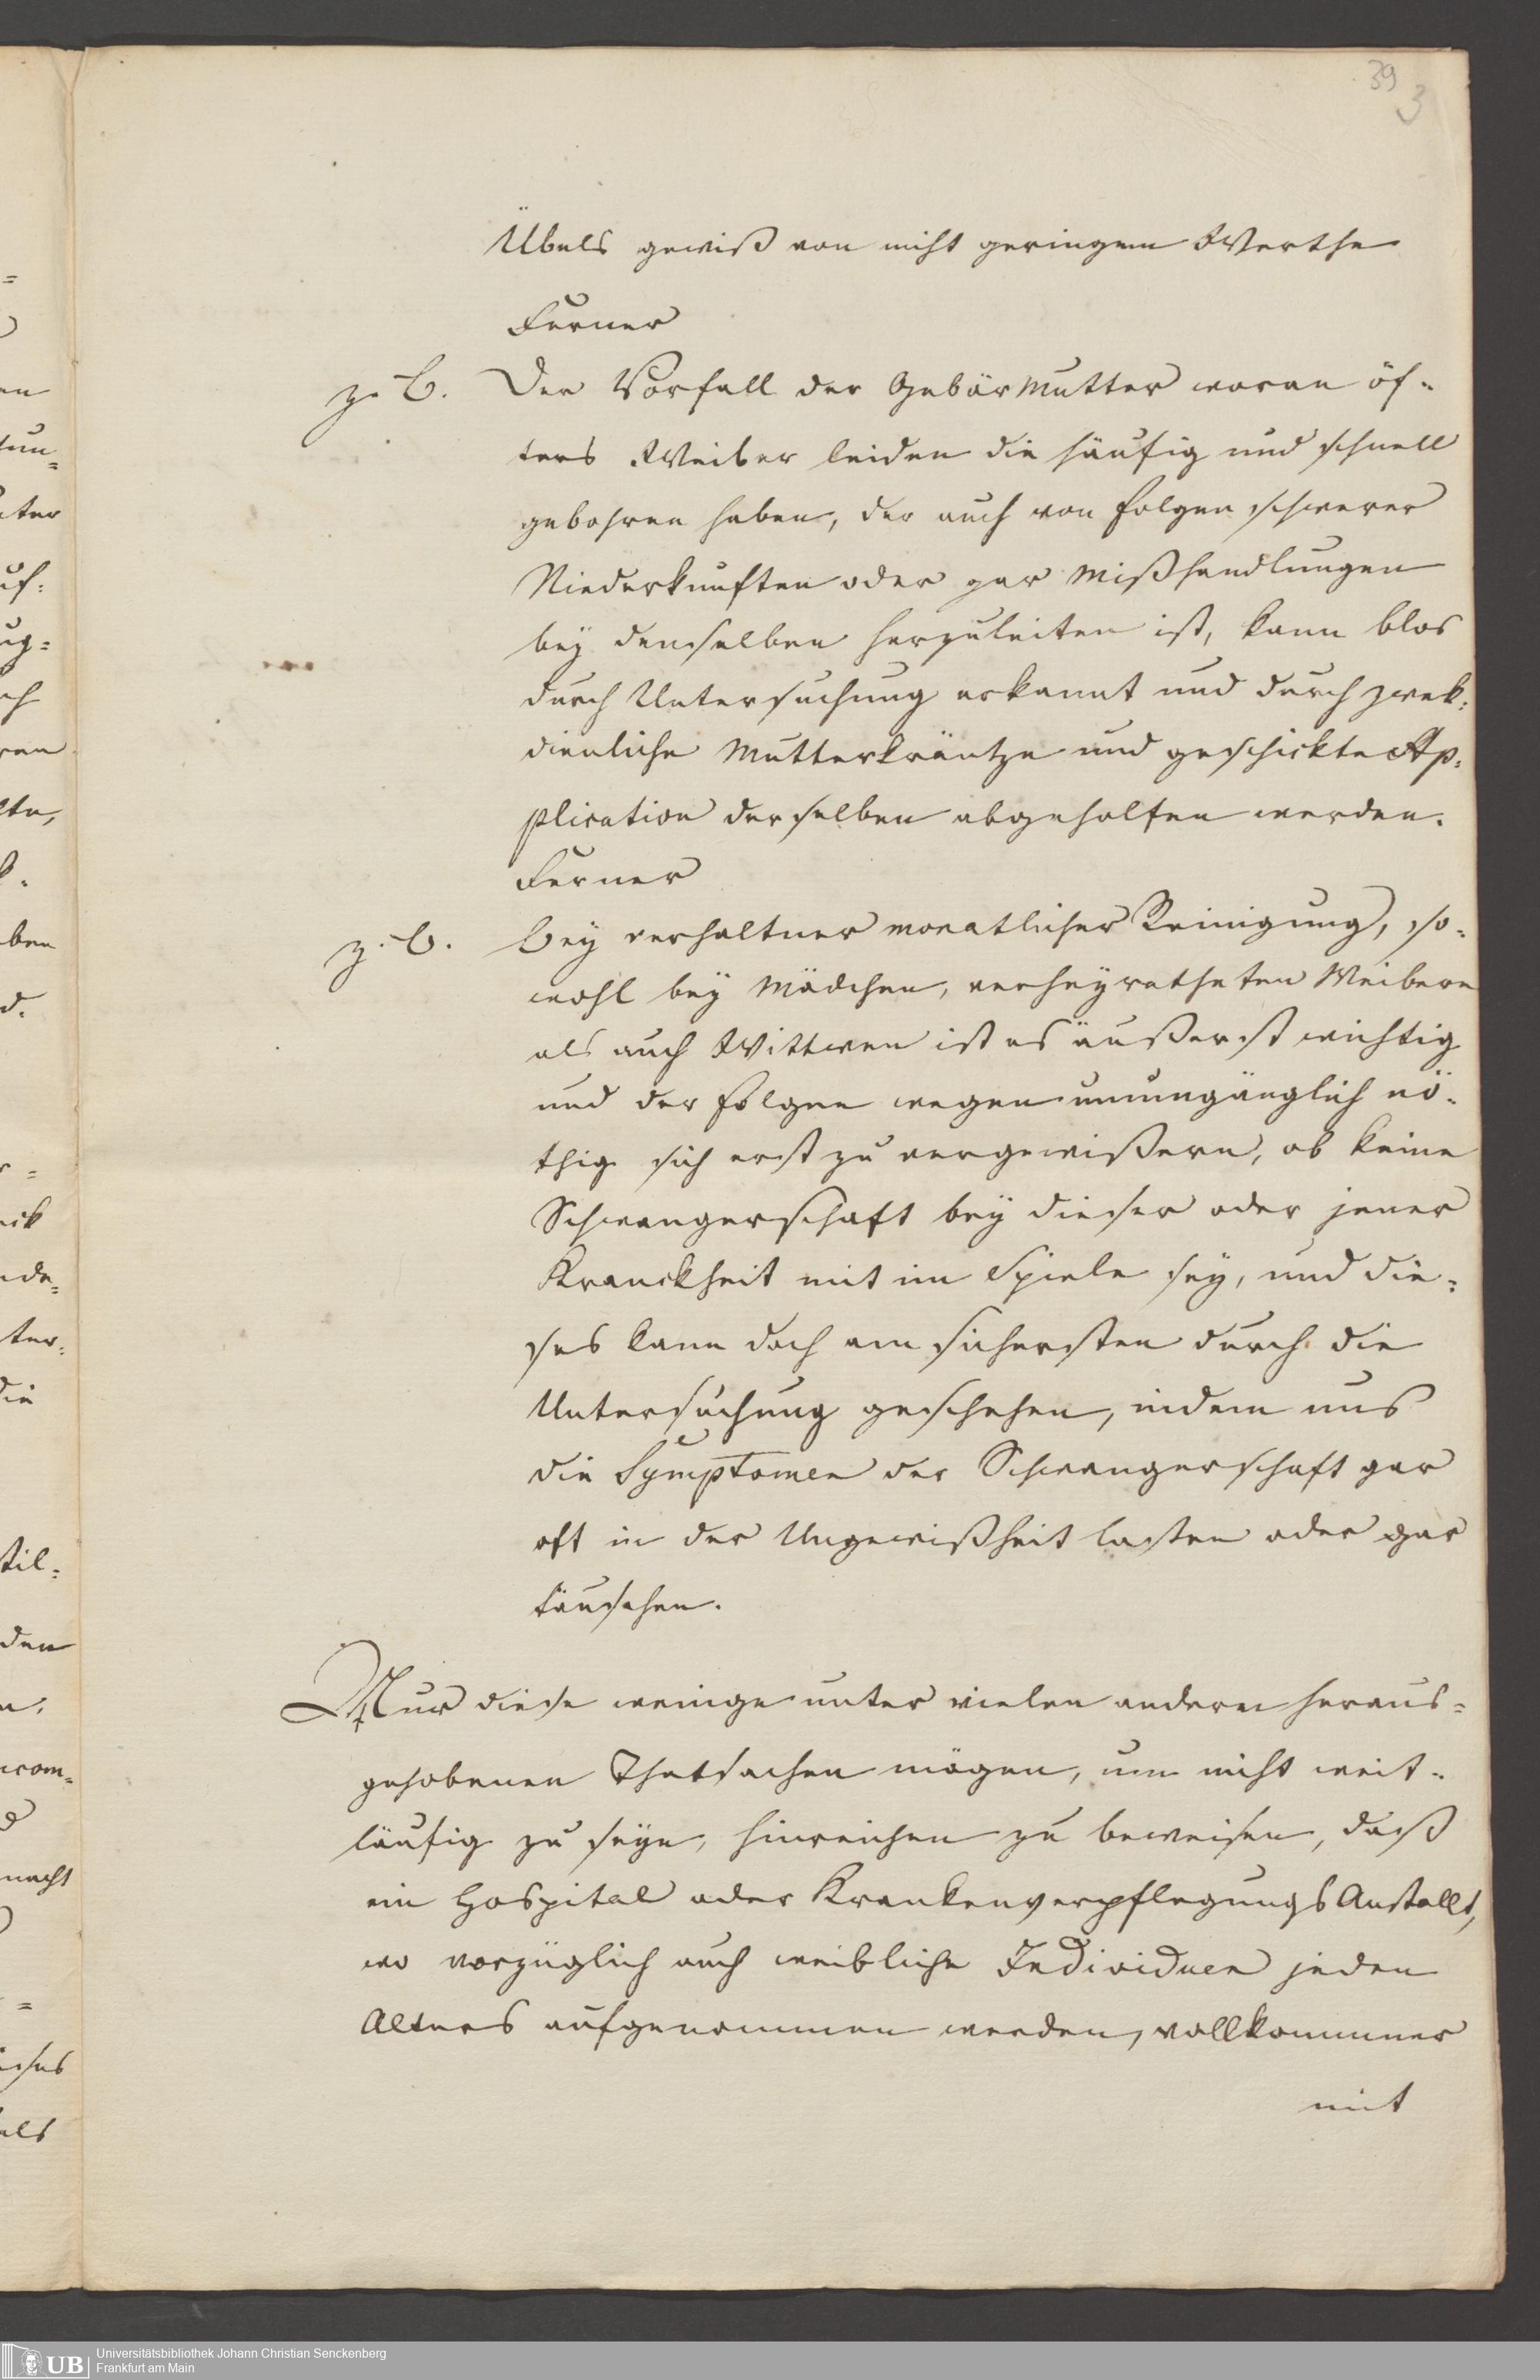 39
3
Übels gewiß von nicht geringem Werthe
Ferner
z. B. Der Vorfall der Gebärmutter woran öf-
ters Weiber leiden die häufig und schnell
gebohren haben, der auch von Folgen schwerer
Niederkunften oder gar Mißhandlungen
bey denselben herzuleiten ist, kann blos
durch Untersuchung erkannt und durch zwek-
dienliche Mutterkräntze und geschickte Ap-
plication derselben abgeholfen werden.
Ferner
z. B. bey verhaltner monatlicher Reinigung, so-
wohl bey Mädchen, verheyratheten Weibern
als auch Wittwen ist es äußerst wichtig
und der Folgen wegen unumgänglich nö-
thig sich erst zu vergewißern, ob keine
Schwangerschaft bey dieser oder jener
Kranckheit mit im Spiele sey, und die-
ses kann doch am sichersten durch die
Untersuchung geschehen, indem uns
die Symptomen der Schwangerschaft gar
oft in der Ungewißheit lasten oder gar
täuschen.
Nur diese wenige unter vielen andern heraus-
gehobenen Thatsachen mögen, um nicht weit-
läufig zu seyn, hinreichen zu beweisen, daß
ein Hospital oder KrankenverpflegungsAnstallt,
wo vorzüglich auch weibliche Individuen jeden
Alters aufgenommen werden, vollkommner
mit
UB Universitätsbibliothek Johann Christian Senckenberg
Frankfurt am Main